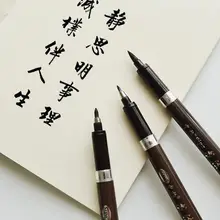 靜思明事理
樸伴人生